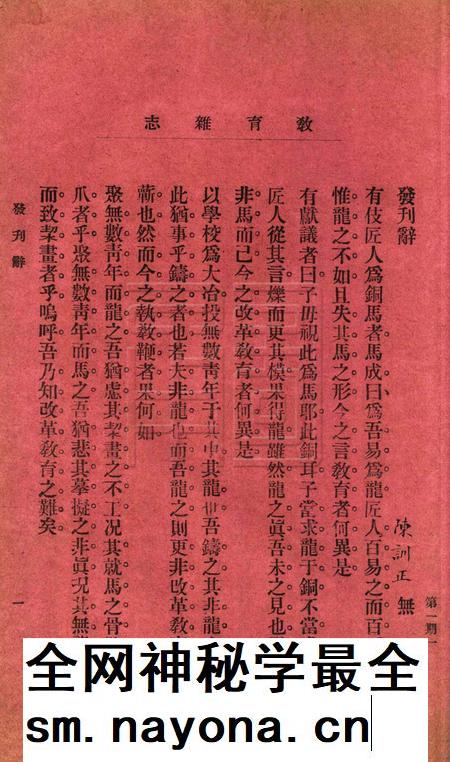 敎育雜志
第一期
發刊辭
陳訓正 無
有伎匠人爲銅馬者馬成曰爲吾易爲龍匠人百易之而百
惟龍之不如且失其馬之形今之言敎育者何異是
有獻議者曰子毋視此爲馬耶此銅耳子當求龍于銅不當
匠人從其言爍而更其模果得龍雖然龍之眞吾未之見也
非馬而已今之改革敎育者何異是
以學校爲大冶投無數靑年于其中其龍也吾鑄之其非龍
此猶事乎鑄之者也若大非龍也而吾龍之則更非改革敎
蘄也然而今之執敎鞭者果何如
聚無數靑年而龍之吾猶慮其栔畫之不工況其就馬之骨
爪者乎聚無數靑年而馬之吾猶悲其摹擬之非眞況其無
而致栔畫者乎嗚呼吾乃知改革敎育之難矣
發刊辭
一
全网神秘学最全
sm.nayona.cn